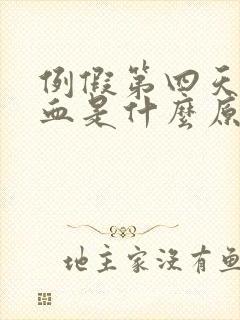 例假第四天
血是什麼原
地主家沒有魚